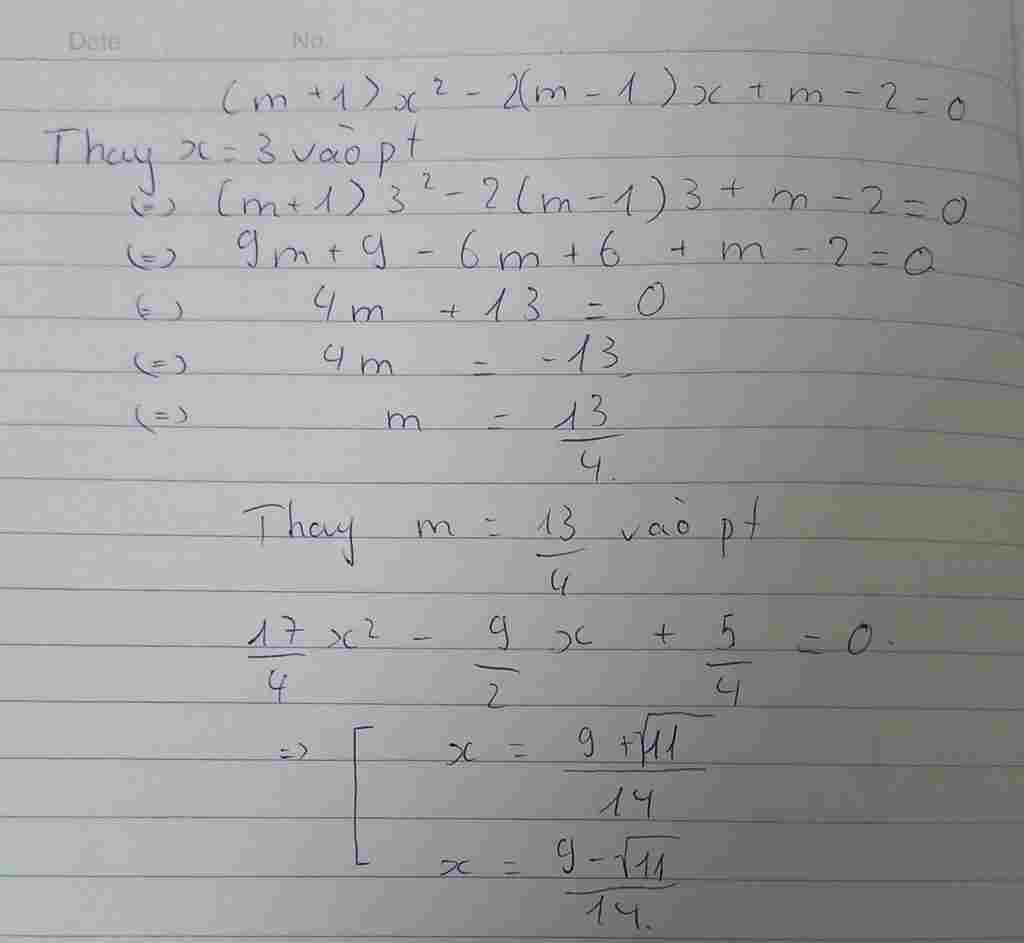 Date No.
(m+1)x² - 2(m-1)x + m - 2 = 0
Thay x = 3 vào pt
(=) (m+1)3² - 2(m-1)3 + m - 2 = 0
(=) 9m + 9 - 6m + 6 + m - 2 = 0
(=) 4m + 13 = 0
(=) 4m = -13
(=) m = 13/4.
Thay m = 13/4 vào pt
17/4 x² - 9/2 x + 5/4 = 0.
=> [ x = (9 + √11)/14
x = (9 - √11)/14.